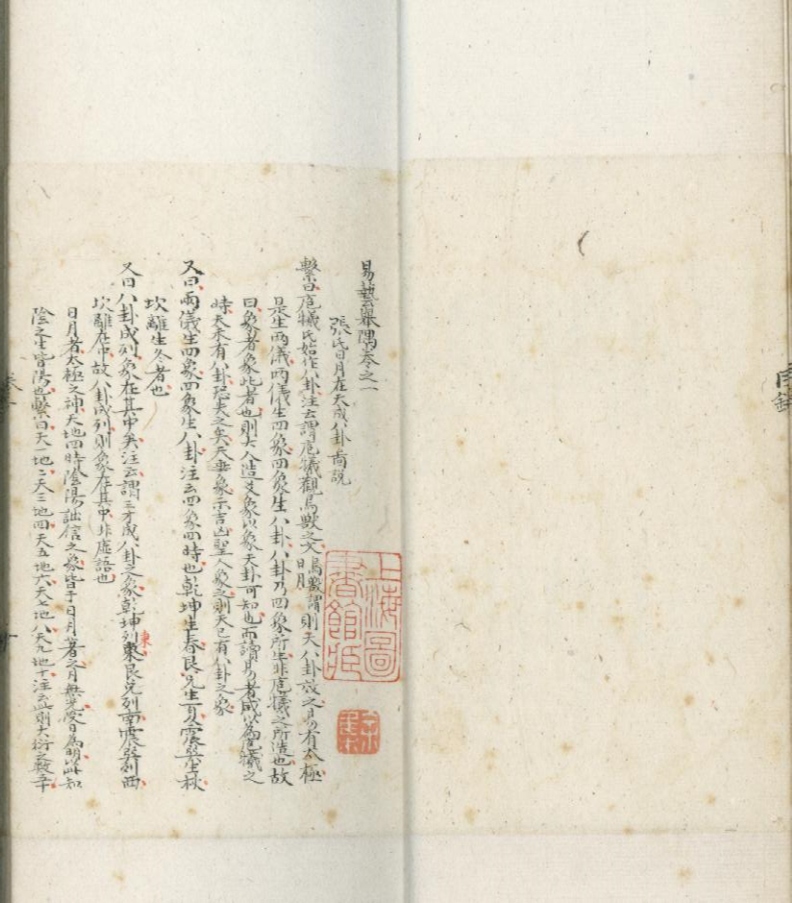 易藝舉隅卷之一
張氏日月在天成八卦啚説
繫曰庖犧氏始作八卦注云謂庖犧觀鳥獸之文鳥獸謂日月則天八卦效之易有太極
是生兩儀兩儀生四象四象生八卦八卦乃四象所生非庖犧之所造也故
曰象者象此者也則大人造爻象以象天卦可知也而讀易者咸以為庖犧之
時天未有八卦恐失之矣天垂象示吉凶聖人象之則天已有八卦之象
又曰兩儀生四象四象生八卦注云四象四時也乾坤生春艮兑生夏震巽生秋
坎離生冬者也
又曰八卦成列象在其中矣注云謂三才成八卦之象乾坤列東東艮兑列南震巽列西
坎離在中故八卦成列則象在其中非虛語也
日月者太極之神天地四時陰陽詘信之象皆于日月著之月無光受日為明以知
陰之生皆陽也繫曰天一地二天三地四天五地六天七地八天九地十注云此則大衍之數五十
上海圖書館藏